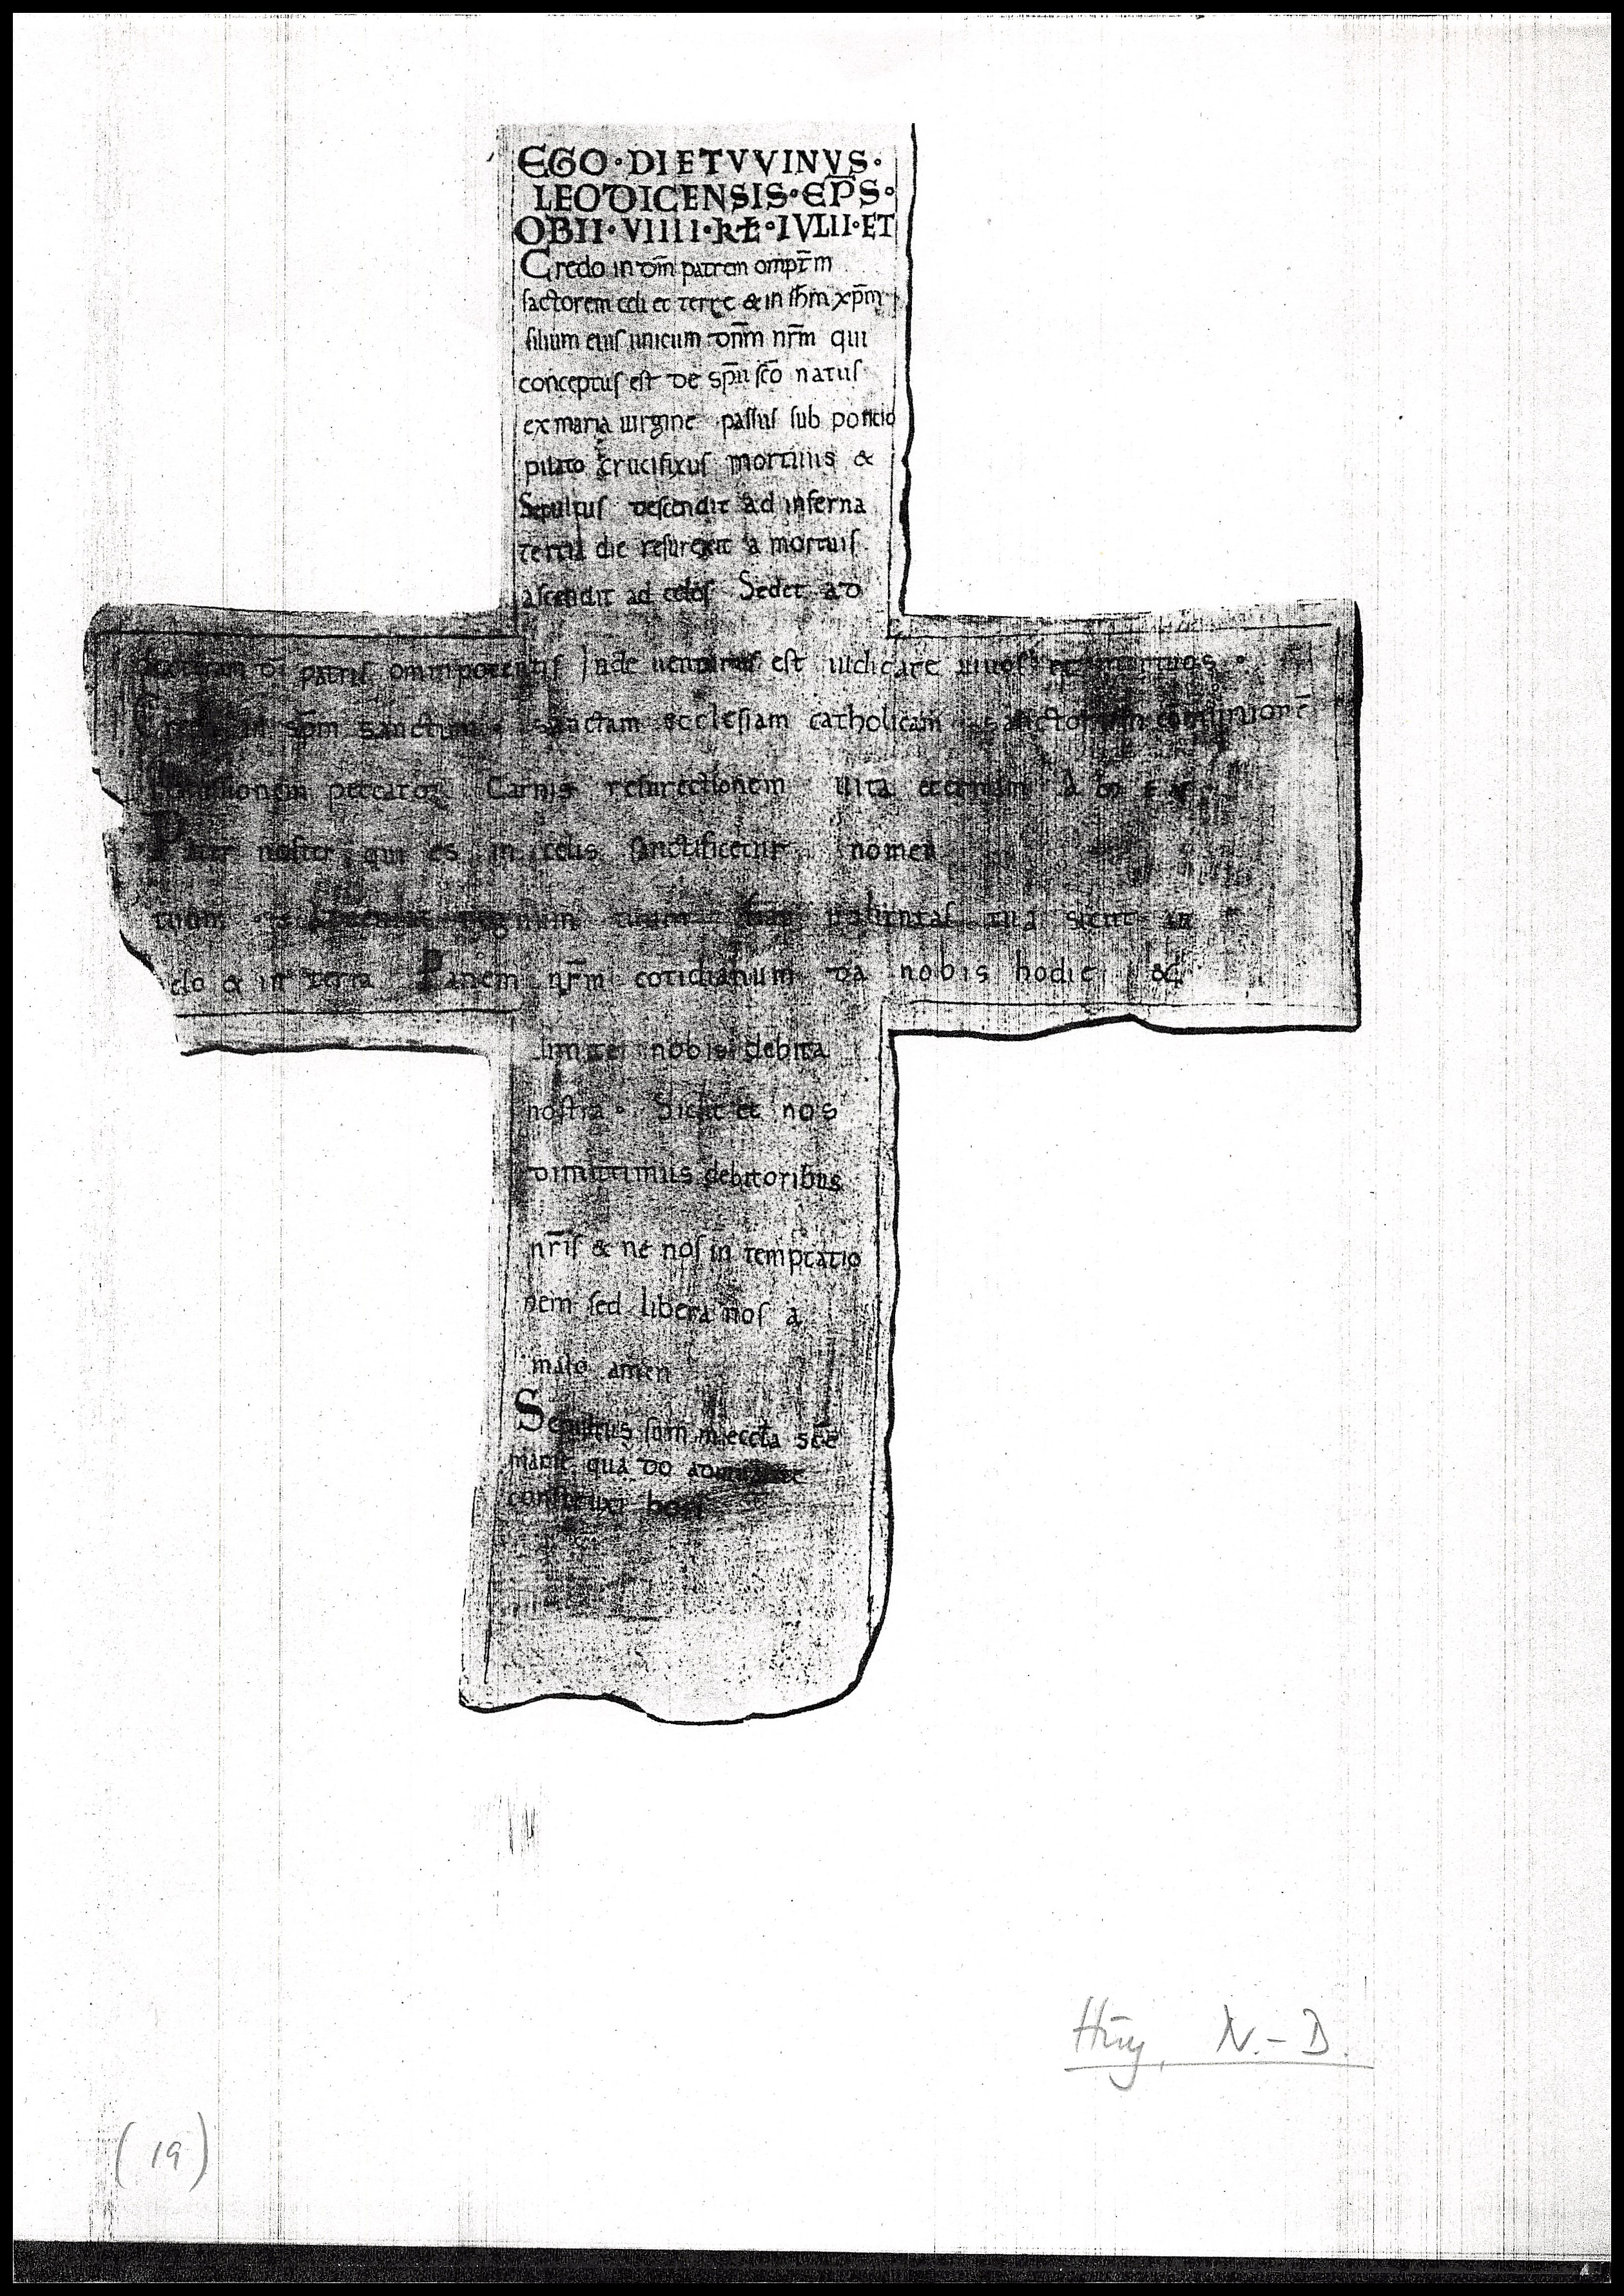 EGO·DIETVVINVS·
LEODICENSIS·EP̄S·
OBII·VIIII·kł·IVLII·ET
Credo in dm̄ patrem ompt̄m
factorem celi et terrę & in ihm̄ xpm̄
filium eius unicum dn̄m nr̄m qui
conceptus est de spū sc̄o natus
ex maria uirgine passus sub poncio
pilato crucifixus mortuus &
Sepultus descendit ad inferna
tertia die resurexit a mortuis
ascendit ad celos Sedet ad
dī patris omnipotentis Inde uenturus est iudicare uiuos et mortuos
in spm̄ sanctum sanctam ecclesiam catholicam sanctorum
Carnis resurectionem uita eternam
Pater noster qui es in celis sanctificetur nomen
tuum regnum tuum uoluntas tua sicut in
celo & in terra Panem nr̄m cotidianum da nobis hodie &
nobis debita
nostra · Sicut et nos
dimittimus debitoribus
nr̄is & ne nos in temptatio
nem sed libera nos a
malo amen
Sepultus sum in eccła scē
marie qua do
construxi
Huy, N.-D.
(19)